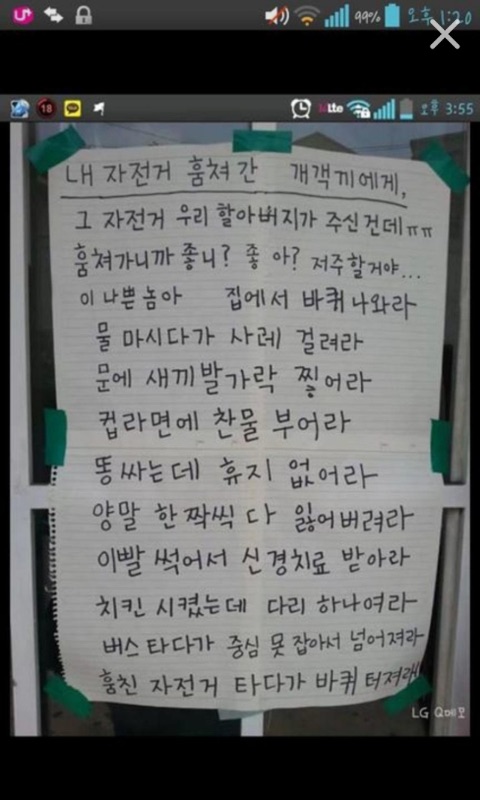 U+ 99% 오후 1:20
18 Lte 오후 3:55
내 자전거 훔쳐간 개객끼에게,
그 자전거 우리 할아버지가 주신건데ㅠㅠ
훔쳐가니까 좋니? 좋아? 저주할거야...
이 나쁜놈아 집에서 바퀴 나와라
물 마시다가 사레 걸려라
문에 새끼발가락 찧어라
컵라면에 찬물 부어라
똥싸는데 휴지 없어라
양말 한짝씩 다 잃어버려라
이빨 썩어서 신경치료 받아라
치킨 시켰는데 다리 하나여라
버스타다가 중심 못 잡아서 넘어져라
훔친 자전거 타다가 바퀴 터져라
LG Q메모